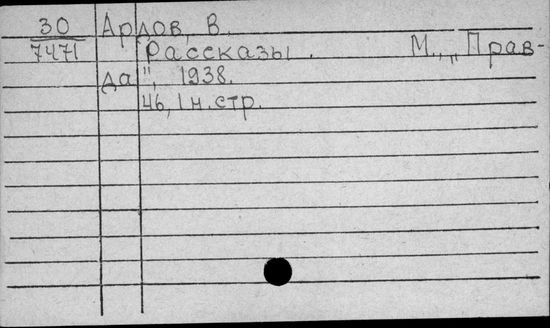 30 Ардов, В.
7471 Рассказы. М., „Прав-
да", 1938.
46, 1 н. стр.